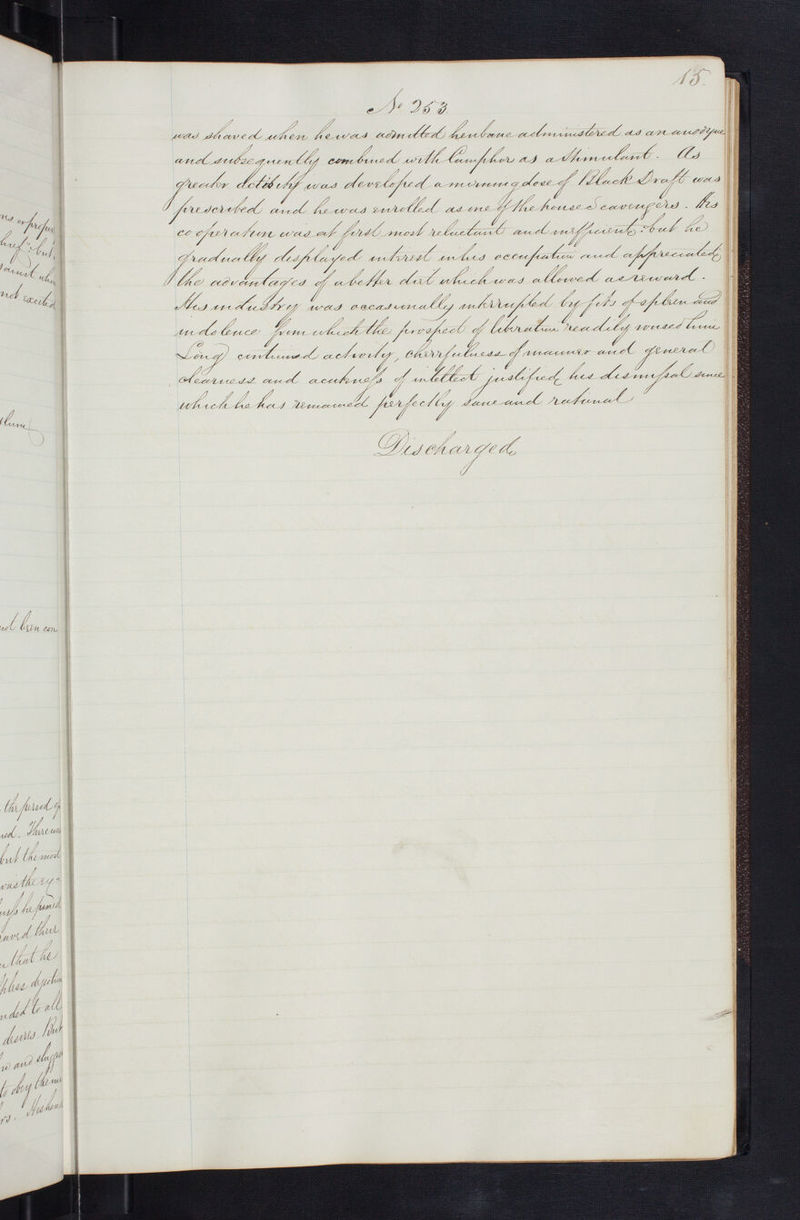 15.
No 253
was shaved when he was admitted henbane administered as an anodyne
and subsequently combined with Camphor as a Stimulant. As
greater docility was developed a morning dose of Black Draft was
prescribed and he was enrolled as one of the house scavengers. His
co operation was at first most reluctant and inefficient: but he
gradually displayed interest in his occupation and appreciated
the advantages of a better diet which was allowed as reward.
His industry was occasionally interrupted by fits of spleen and
indolence from which the prospect of liberation readily roused him
Long continued activity, cheerfulness of manner and general
clearness and acuteness of intellect justified his dismissal since
which he has remained perfectly sane and rational
Discharged
not been con
the period of
ed. There was
but the most
was the
he pined
that he
dejection
nded to all
desires. But
and
to obey the